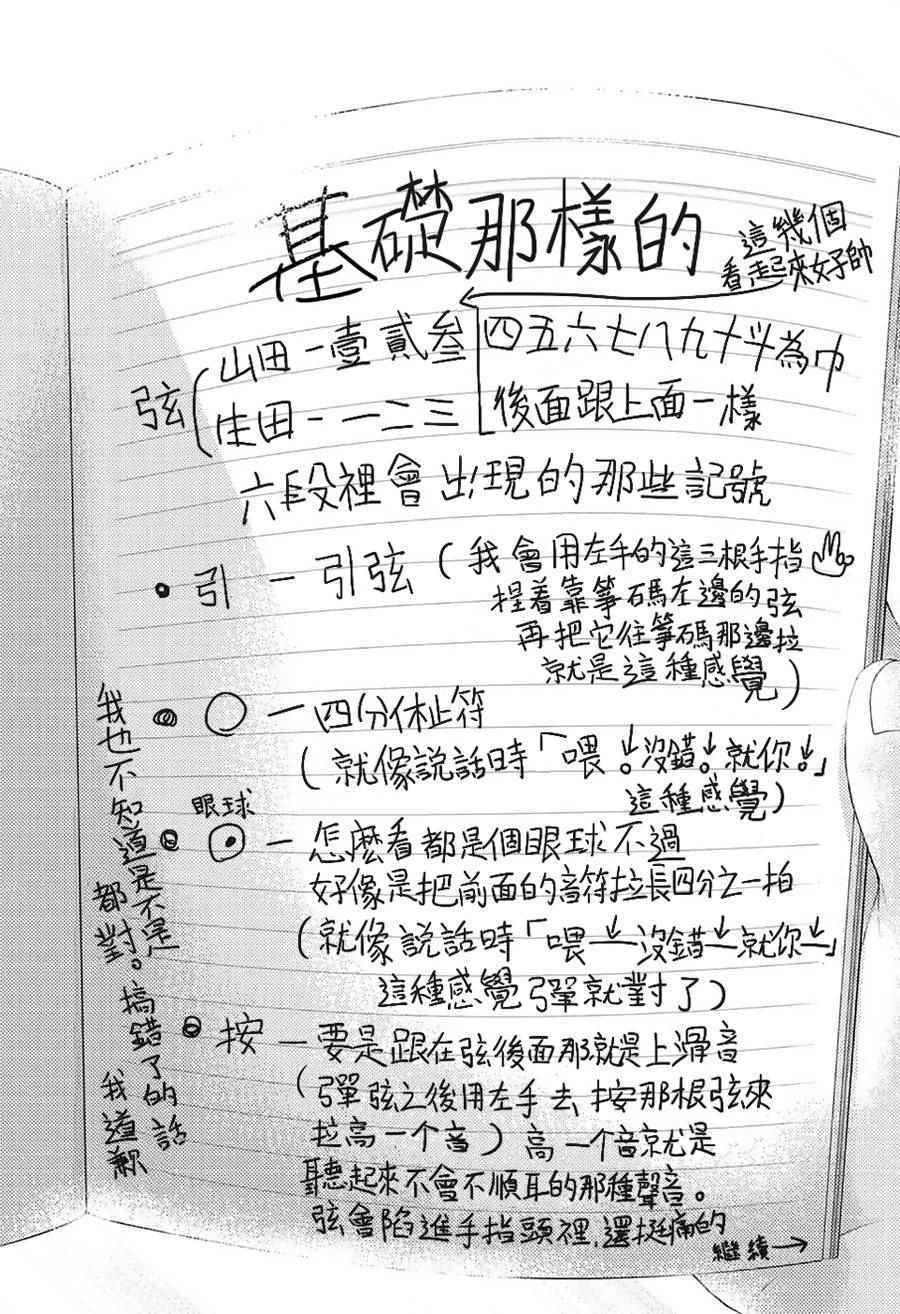 基礎那樣的
這幾個
看起來好帥
弦
山田－壹貳叁 四五六七八九十斗為巾
生田－一二三 後面跟上面一樣
六段裡會出現的那些記號
・引－引弦(我會用左手的這三根手指
捏着靠箏碼左邊的弦
再把它往箏碼那邊拉
就是這種感覺)
○－四分休止符
(就像說話時「喂↓。沒錯↓。就你↓。」
這種感覺)
眼球
－怎麼看都是個眼球不過
好像是把前面的音符拉長四分之一拍
(就像說話時「喂－沒錯－就你－」
這種感覺彈就對了)
按－要是跟在弦後面那就是上滑音
(彈弦之後用左手去按那根弦來
拉高一个音)高一个音就是
聽起來不會不順耳的那種聲音。
弦會陷進手指頭裡,還挺痛的
繼續→
我也不知道是不是
都對。搞錯了的話
我道歉